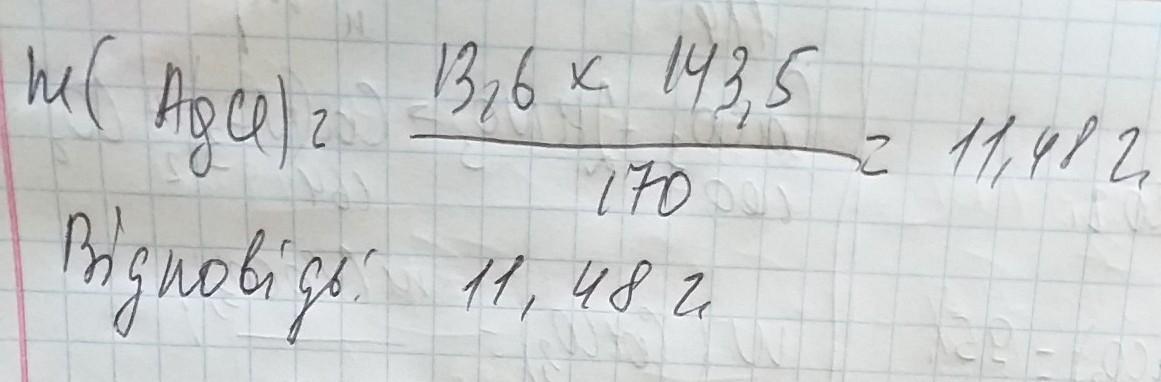 m(AgCl) = 13,6 × 143,5 / 170 = 11,48 г
Відповідь: 11,48 г